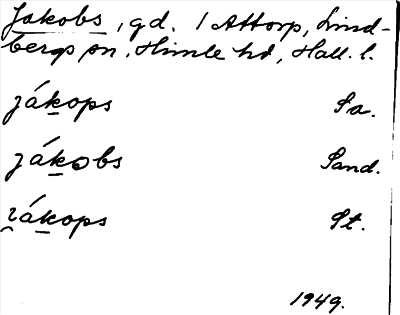 Jakobs, gd. 1 Attorp, Lind-
bergs sn. Himle hd, Hall. l.
jákops Sa.
jákobs Sand.
jákops St.
1949.